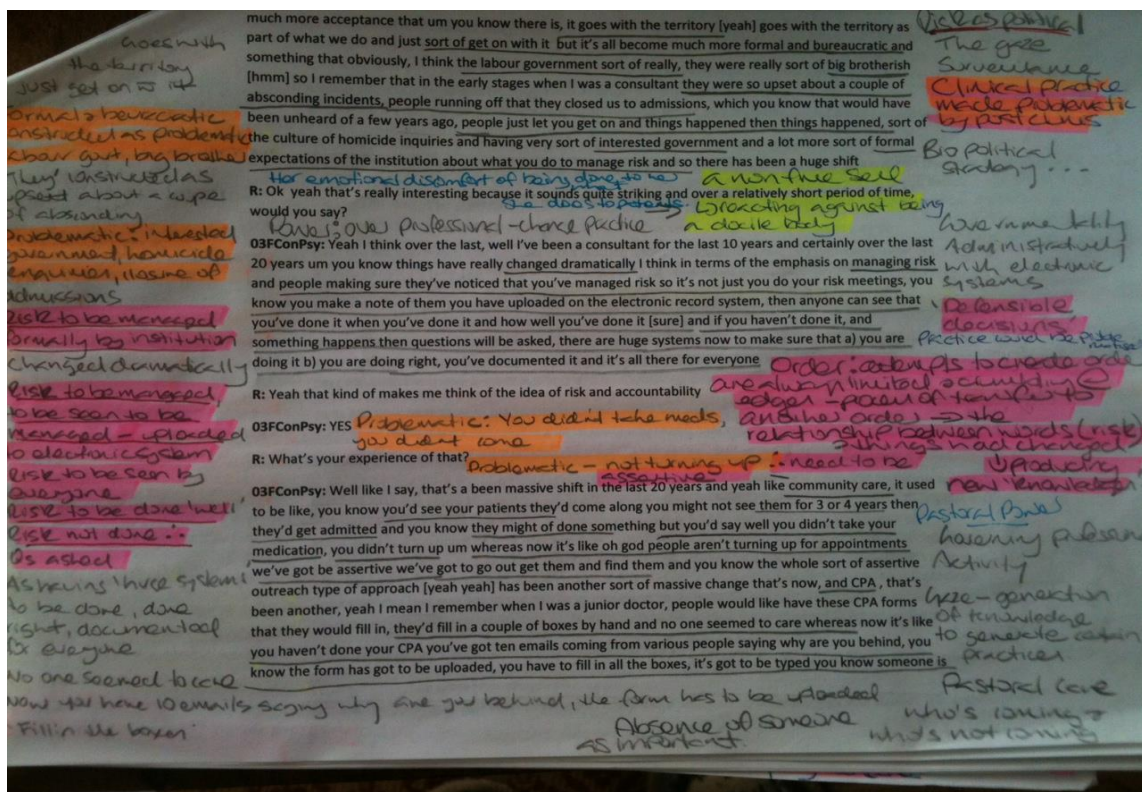 much more acceptance that um you know there is, it goes with the territory [yeah] goes with the territory as
part of what we do and just sort of get on with it but it's all become much more formal and bureaucratic and
something that obviously, I think the labour government sort of really, they were really sort of big brotherish
[hmm] so I remember that in the early stages when I was a consultant they were so upset about a couple of
absconding incidents, people running off that they closed us to admissions, which you know that would have
been unheard of a few years ago, people just let you get on and things happened then things happened, sort of
the culture of homicide inquiries and having very sort of interested government and a lot more sort of formal
expectations of the institution about what you do to manage risk and so there has been a huge shift
Her emotional discomfort of being done to her
she does to patients
a non-free self
R: Ok yeah that's really interesting because it sounds quite striking and over a relatively short period of time,
would you say?
Power: over professional - change practice
→ Loroacting against being
a docile body
03FConPsy: Yeah I think over the last, well I've been a consultant for the last 10 years and certainly over the last
20 years um you know things have really changed dramatically I think in terms of the emphasis on managing risk
and people making sure they've noticed that you've managed risk so it's not just you do your risk meetings, you
know you make a note of them you have uploaded on the electronic record system, then anyone can see that
you've done it when you've done it and how well you've done it [sure] and if you haven't done it, and
something happens then questions will be asked, there are huge systems now to make sure that a) you are
doing it b) you are doing right, you've documented it and it's all there for everyone
R: Yeah that kind of makes me think of the idea of risk and accountability
03FConPsy: YES
Problematic: You didn't take meds,
you didn't come
R: What's your experience of that?
Problematic - not turning up ∴ need to be
assertive
03FConPsy: Well like I say, that's a been massive shift in the last 20 years and yeah like community care, it used
to be like, you know you'd see your patients they'd come along you might not see them for 3 or 4 years then
they'd get admitted and you know they might of done something but you'd say well you didn't take your
medication, you didn't turn up um whereas now it's like oh god people aren't turning up for appointments
we've got be assertive we've got to go out get them and find them and you know the whole sort of assertive
outreach type of approach [yeah yeah] has been another sort of massive change that's now, and CPA , that's
been another, yeah I mean I remember when I was a junior doctor, people would like have these CPA forms
that they would fill in, they'd fill in a couple of boxes by hand and no one seemed to care whereas now it's like
you haven't done your CPA you've got ten emails coming from various people saying why are you behind, you
know the form has got to be uploaded, you have to fill in all the boxes, it's got to be typed you know someone is
goes with
the territory
just get on
formal + beurocratic
constructed as problematic
labour govt, big brother
'They' constructed as
upset about a cupe
of absconding
Problematic: interested
government, homicide
enquiries, closure of
admissions
Risk to be managed
formally by institution
Changed dramatically
Risk to be managed,
to be seen to be
managed - uploaded
to electronic system
Risk to be seen by
everyone
Risk to be done 'well'
Risk not done ∴
Qs asked
As having 'huge systems'
to be done, done
right, documented
for everyone
No one seemed to care
Now you have 10 emails saying why are you behind, the form has to be uploaded
Fill in the boxes
Risk as political
The gaze
Surveillance
Clinical practice
made problematic
by
Bio political
strategy...
Governmentality
Administratively
with electronic
systems
Defensible
decisions
Practice would be
Order: attempts to create order
are always limited according
power of transfer to
another order → the
relationship between words (risk)
+ things had changed
producing
new 'knowledge'
Pastoral Power
Activity
Gaze - generation
of knowledge
to generate certain
practices
Pastoral care
who's coming +
who's not coming
Absence of someone
as important.